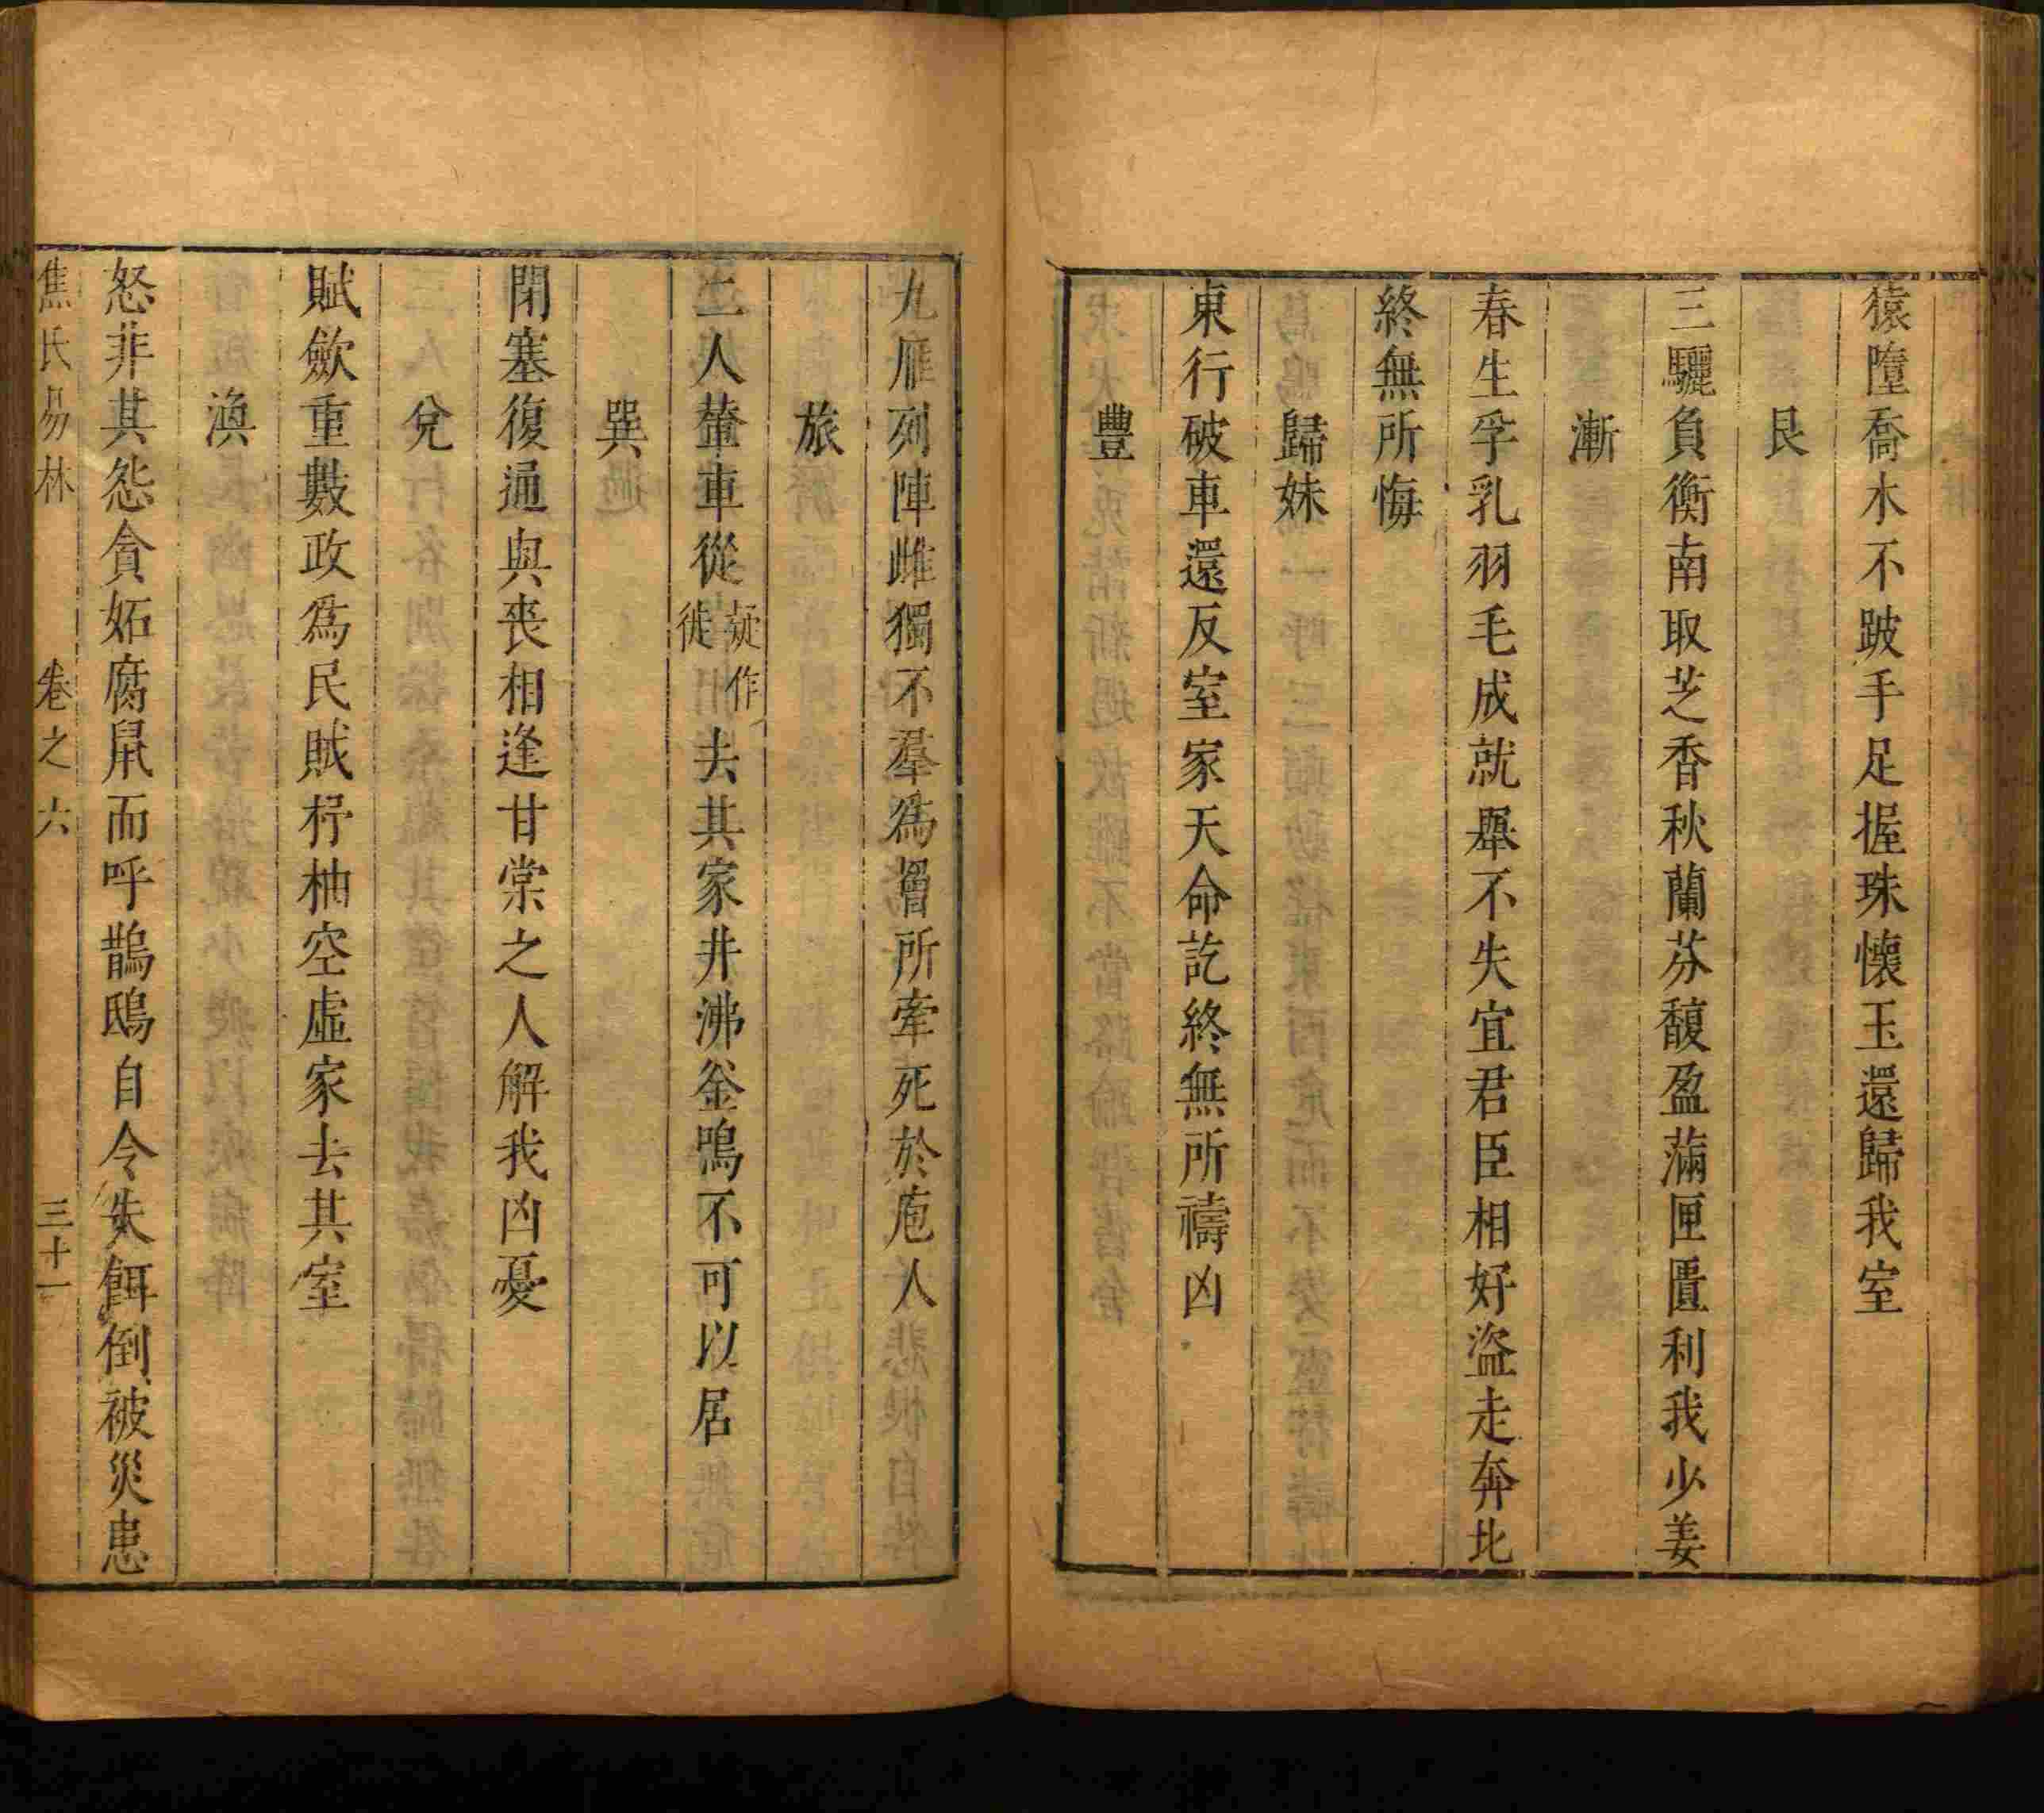 猿墮喬木不踒手足握珠懷玉還歸我室
艮
三驪負衡南取芝香秋蘭芬馥盈滿匣匱利我少姜
漸
春生孚乳羽毛成就舉不失宜君臣相好盜走奔北
終無所悔
歸妹
東行破車還反室家天命訖終無所禱凶
豐
九雁列陣雌獨不羣爲罾所牽死於庖人
旅
二人輦車從疑作徙去其家井沸釜鳴不可以居
巽
閉塞復通與喪相逢甘棠之人解我凶憂
兌
賦斂重數政爲民賊杼柚空虛家去其室
渙
怒非其怨貪妬腐鼠而呼鵲鴟自令失餌倒被災患
焦氏易林 卷之六 三十一